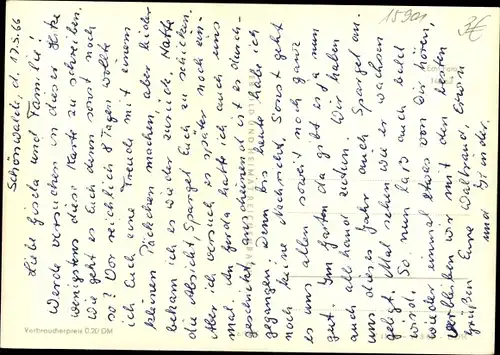 Schönwalde, d. 17.5.66
Liebe Gisela und Familie!
Werde versuchen in dieser Hitze
wenigstens diese Karte zu schreiben.
Wie geht es Euch denn sonst noch
so? Vor reichlich 8 Tagen wollte
ich Euch eine Freude mit einem
kleinen Päckchen machen, aber leider
bekam ich es wieder zurück. Hatte
die Absicht, Spargel Euch zu schicken.
Aber ich versuch es später noch ein-
mal. An Gerda hatte ich auch uns
geschickt, anscheinend ist es durch-
gegangen. Denn bis heute habe ich
noch keine Nachricht. Sonst geht
es uns allen soweit noch ganz
gut. Im Garten da gibt es ja nun
auch allhand zutun. Wir haben
uns dieses Jahr auch Spargel an-
gelegt. Mal sehen wie er wachsen
wird. So nun laß auch bald
wieder einmal etwas von Dir hören,
verbleiben wir mit den besten
Grüßen Eure Waltraud, Erwin
und
Verbraucherpreis 0,20 DM
15901
3€